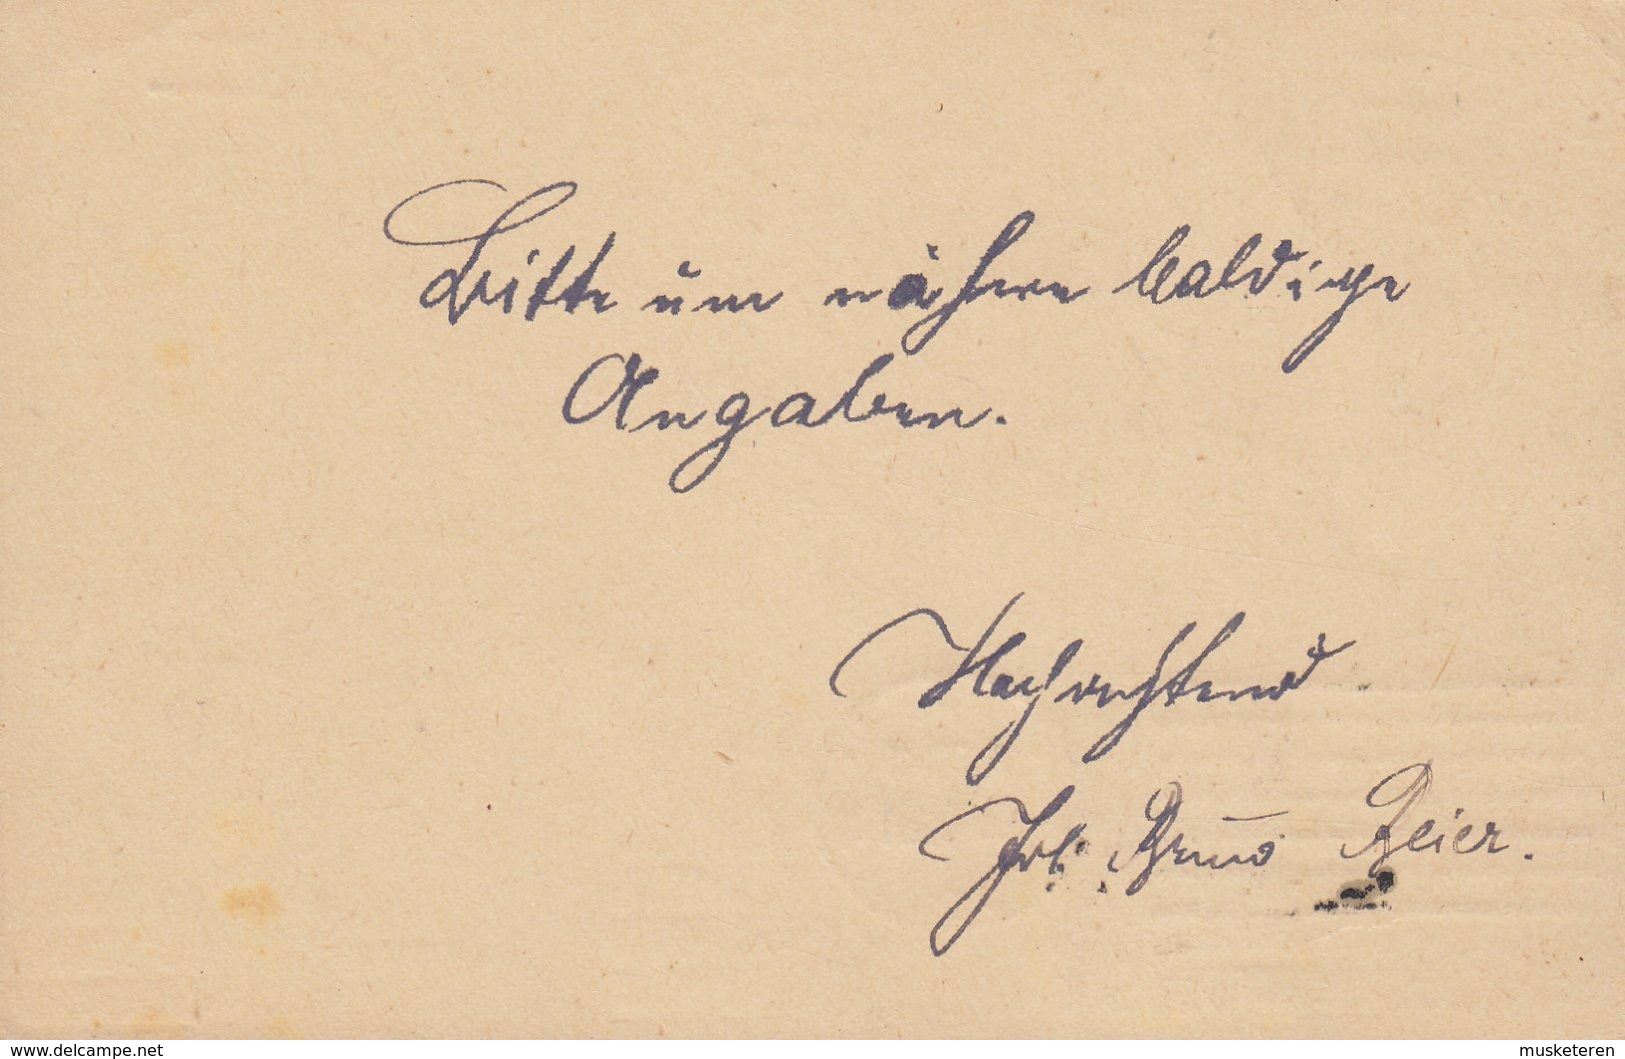 Bitte um nähere baldige
Angaben.
Hochachtend
Bruno Beier.
www.delcampe.net
musketeren